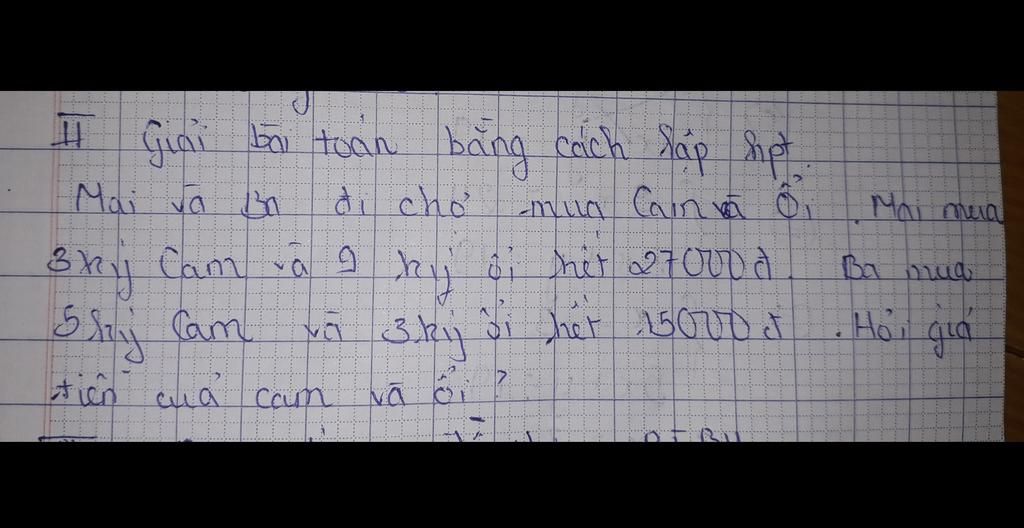 II Giải bài toán bằng cách lập hpt.
Mai và Ba đi chợ mua Cam và Ổi. Mai mua
3 ký Cam và 9 ký ổi hết 27000đ. Ba mua
5 ký Cam và 3 ký ổi hết 15000đ. Hỏi giá
tiền quả cam và ổi?